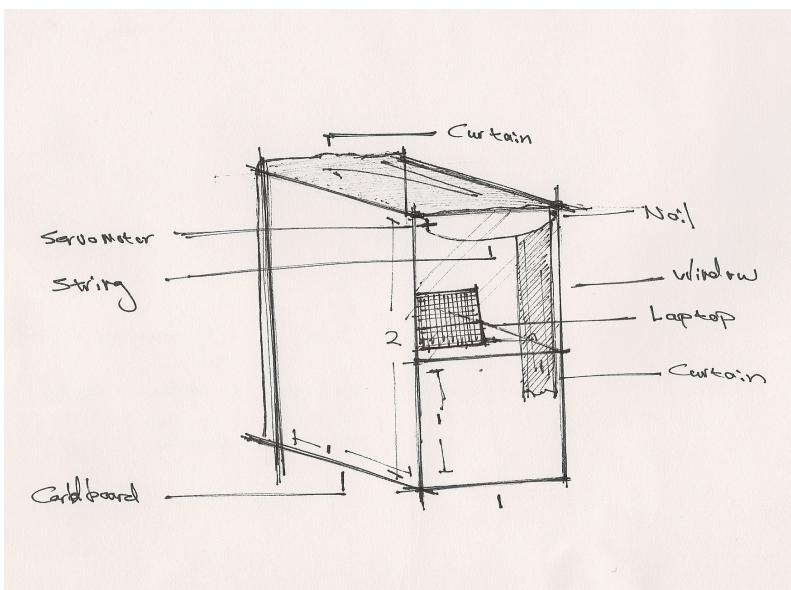 Curtain
Servo Motor
String
Nail
Window
Laptop
2
Curtain
1
1
Cardboard
1